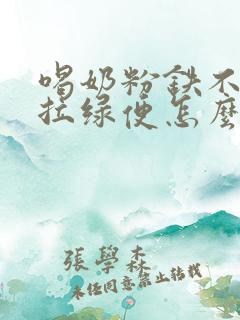 喝奶粉鉄不
拉绿便怎麼
張學森
未任同意禁止转载